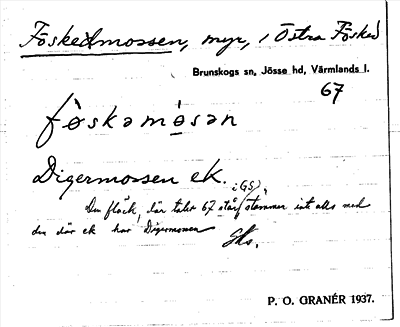 Föskedmossen, myr, i Östra Fösked
Brunskogs sn, Jösse hd, Värmlands l.
67
fø̀skəmósən
Digermossen ek.
i GS),
Den fläck, där talet 67 står stämmer inte alls med
den där ek har Digermossen
Gks.
P. O. GRANÉR 1937.